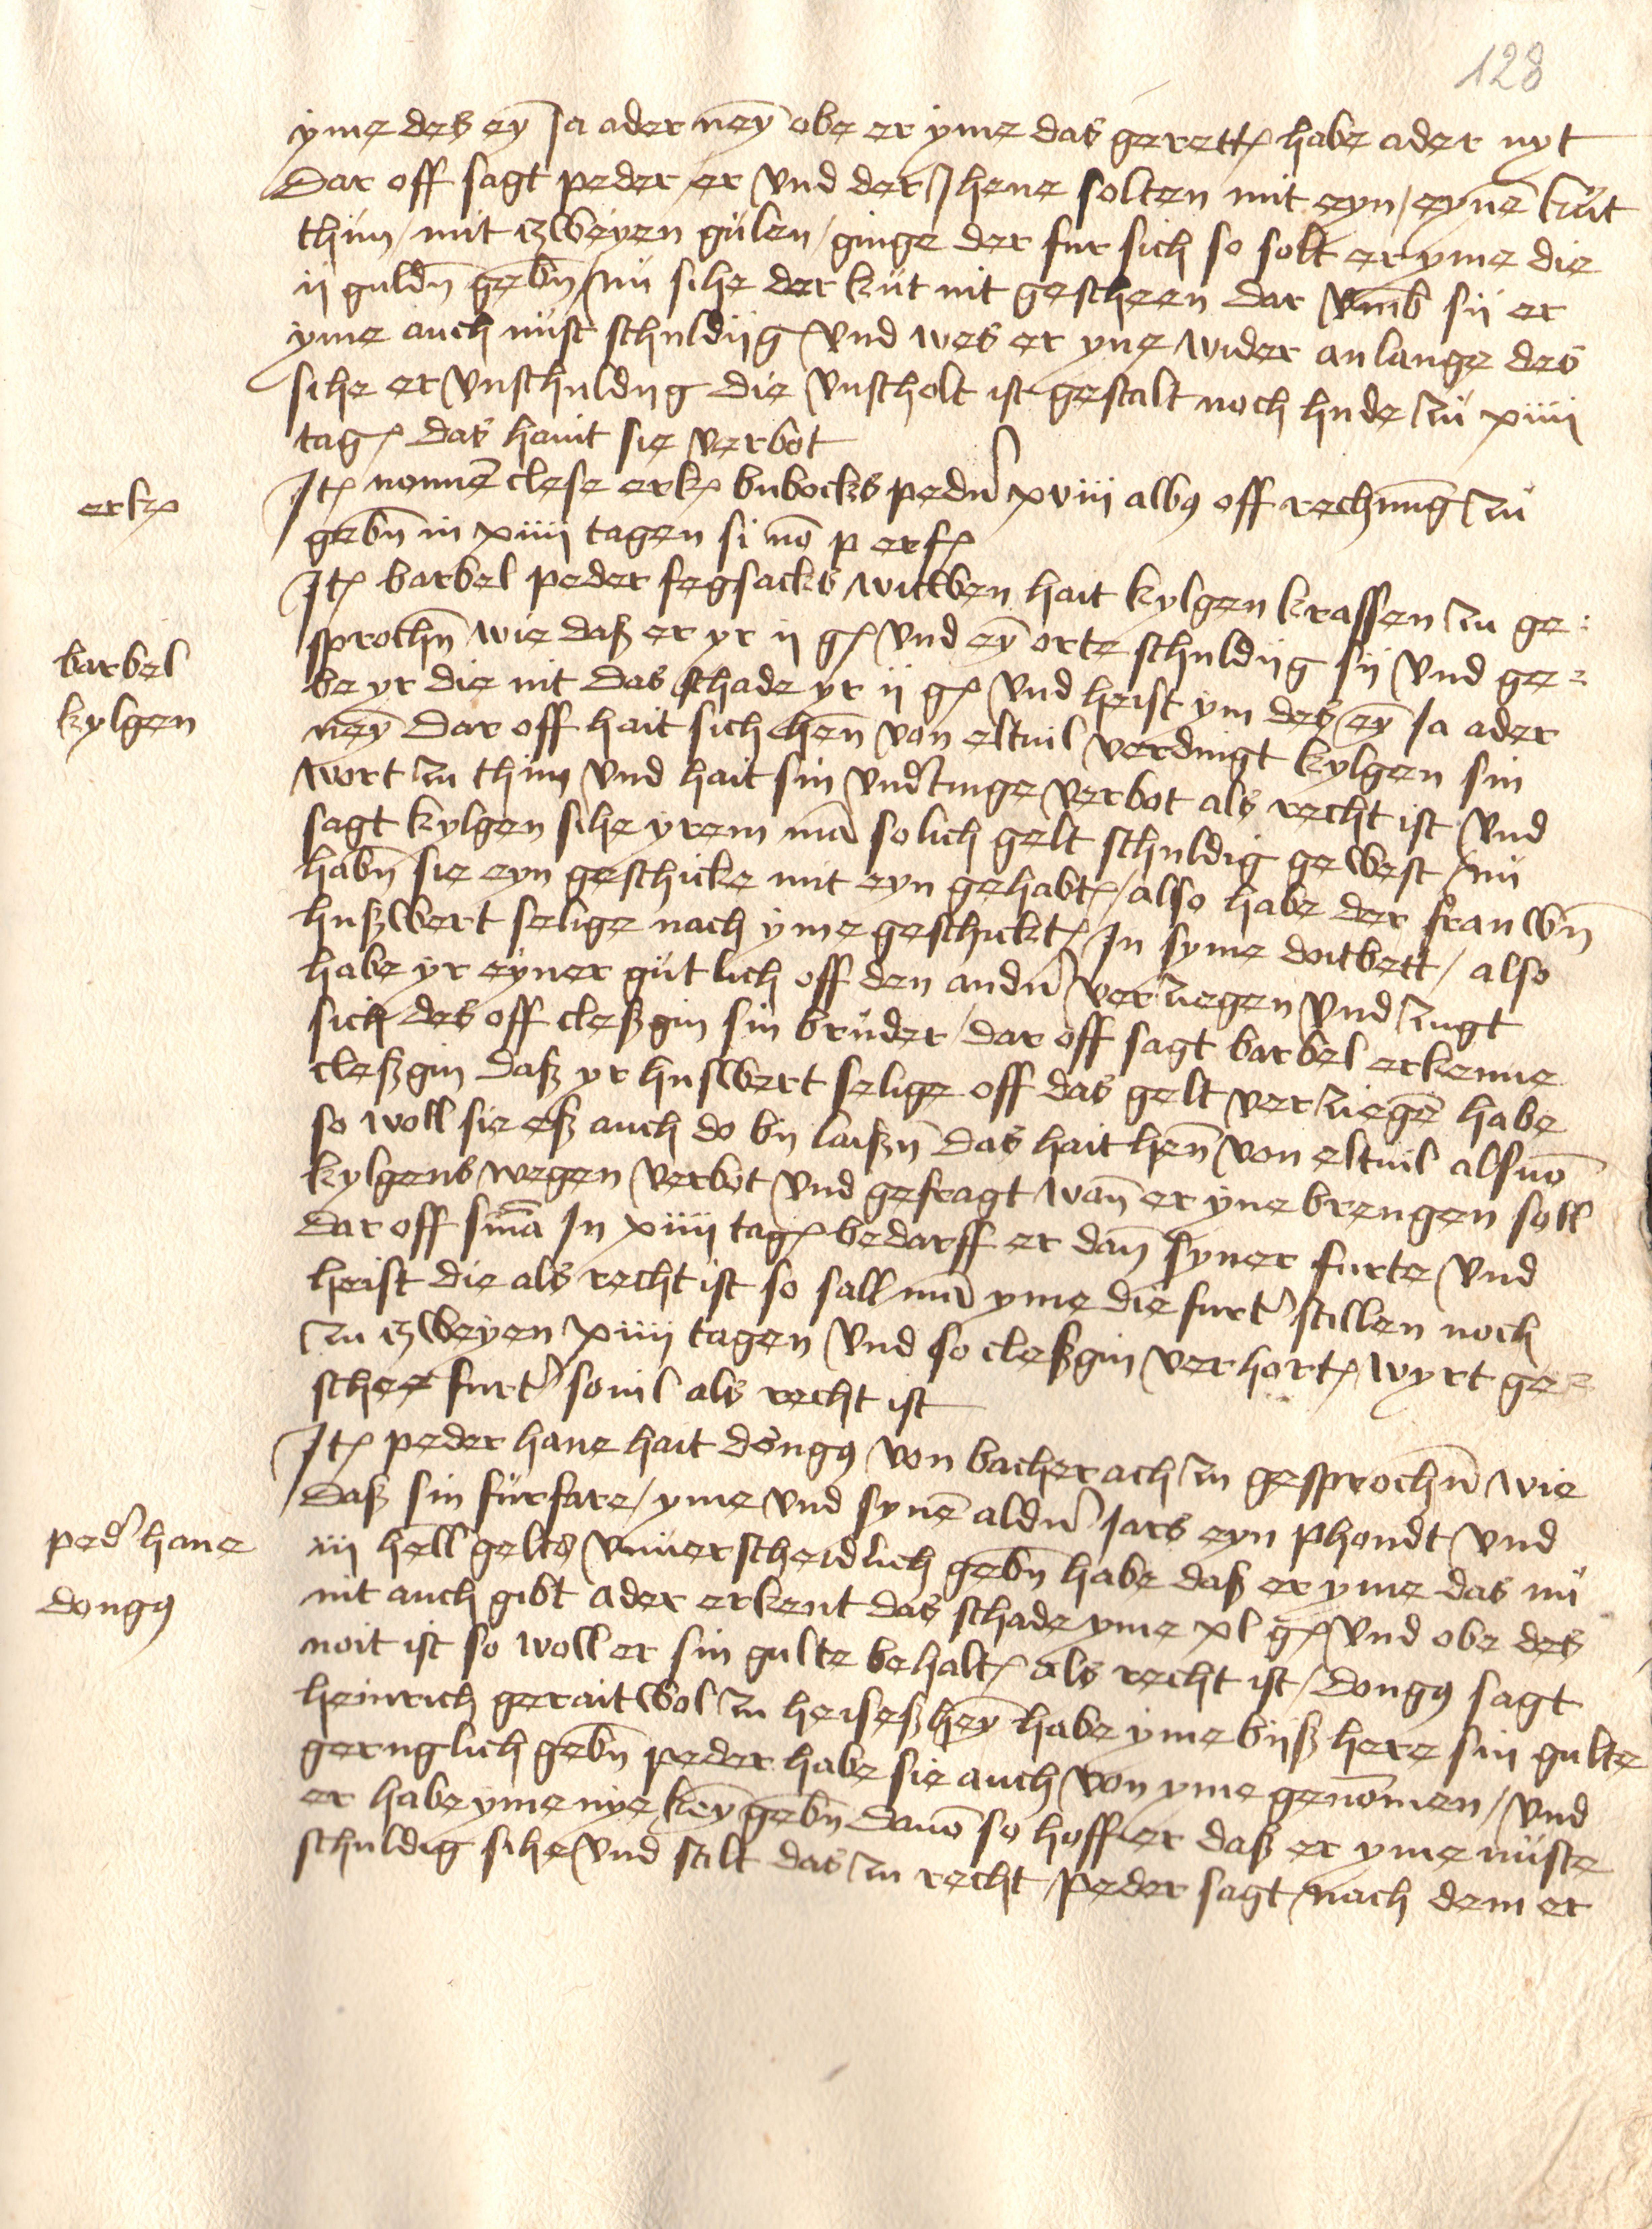 128
yme des ey Ja ader ney obe er yme das gerett habe ader nyt
Dar off sagt peder er vnd der Jhene solten mit eyn / eyne kut
thun / mit zweyen gulen / ginge der fur sich so solt er yme die
ij guldn gebn / nu sihe der kut nit gescheen dar vmb sij er
yme auch nust schuldijg vnd wes er yne wider anlange des
sihe er vnschuldig die vnscholt ist gestalt noch hude zu xiiij
tag das haint sie verbot
erk
Jt nonne clese erk bubocks pedn xviij albg off rechnung zu
gebn in xiiij tagen si no p erf
barbel
kylgen
Jt barbel peder fegsacks witwen hait kylgen krassen zu ge:
sprochn wie daß er yr ij g vnd ey orte schuldijg sij vnd ge:
be yr die nit das schade yr ij g vnd heist ym des ey Ja ader
ney Dar off hait sich hen von eltuil verdingt kylgen sin
wort zu thun vnd hait sin vndtinge verbot als recht ist vnd
sagt kylgen sihe yrem ma solich gelt schuldig gewest / nu
habn sie eyn geschicke mit eyn gehabt / also habe der frauwn
hußwert selige nach yme geschickt Jn syme doitbett / also
habe yr eyner gutlich off den andn verziegen vnd zugt
sich des off cleßgin sin bruder / dar off sagt barbel erkenne
cleßgin daß yr hußwert selige off das gelt verziege habe
so woll sie eß auch do bij laißn das hait hen von eltuil alsuo
kylgens wegen verbot vnd gefragt wan er yne brengen soll
dar off sma Jn xiiij tag bedarff er dan syner furte vnd
heist die als recht ist so sall ma yme die furt stillen noch
zu zweyen xiiij tagen vnd so cleßgin verhort wyrt ge:
schee furt souil als recht ist
ped hane
dongg
Jt peder hane hait dongg von bacherach zu gesprochn wie
daß sin furfare / yme vnd syne aldn Jars eyn phondt vnd
iij hell gelts vnuerscheidlich gebn habe daß er yme das nu
nit auch gibt ader erkent das schade yme xl g vnd obe des
noit ist so woll er sin gulte behalt als recht ist / dongg sagt
heinrich gerait wol zu heiseßhey habe yme bijß here sin gulte
geruglich gebn peder habe sie auch von yme genomen / vnd
er habe yme nye key gebn dauo so hoff er daß er yme nuste
schuldig sihe vnd stilt das zu recht / peder sagt nach dem er